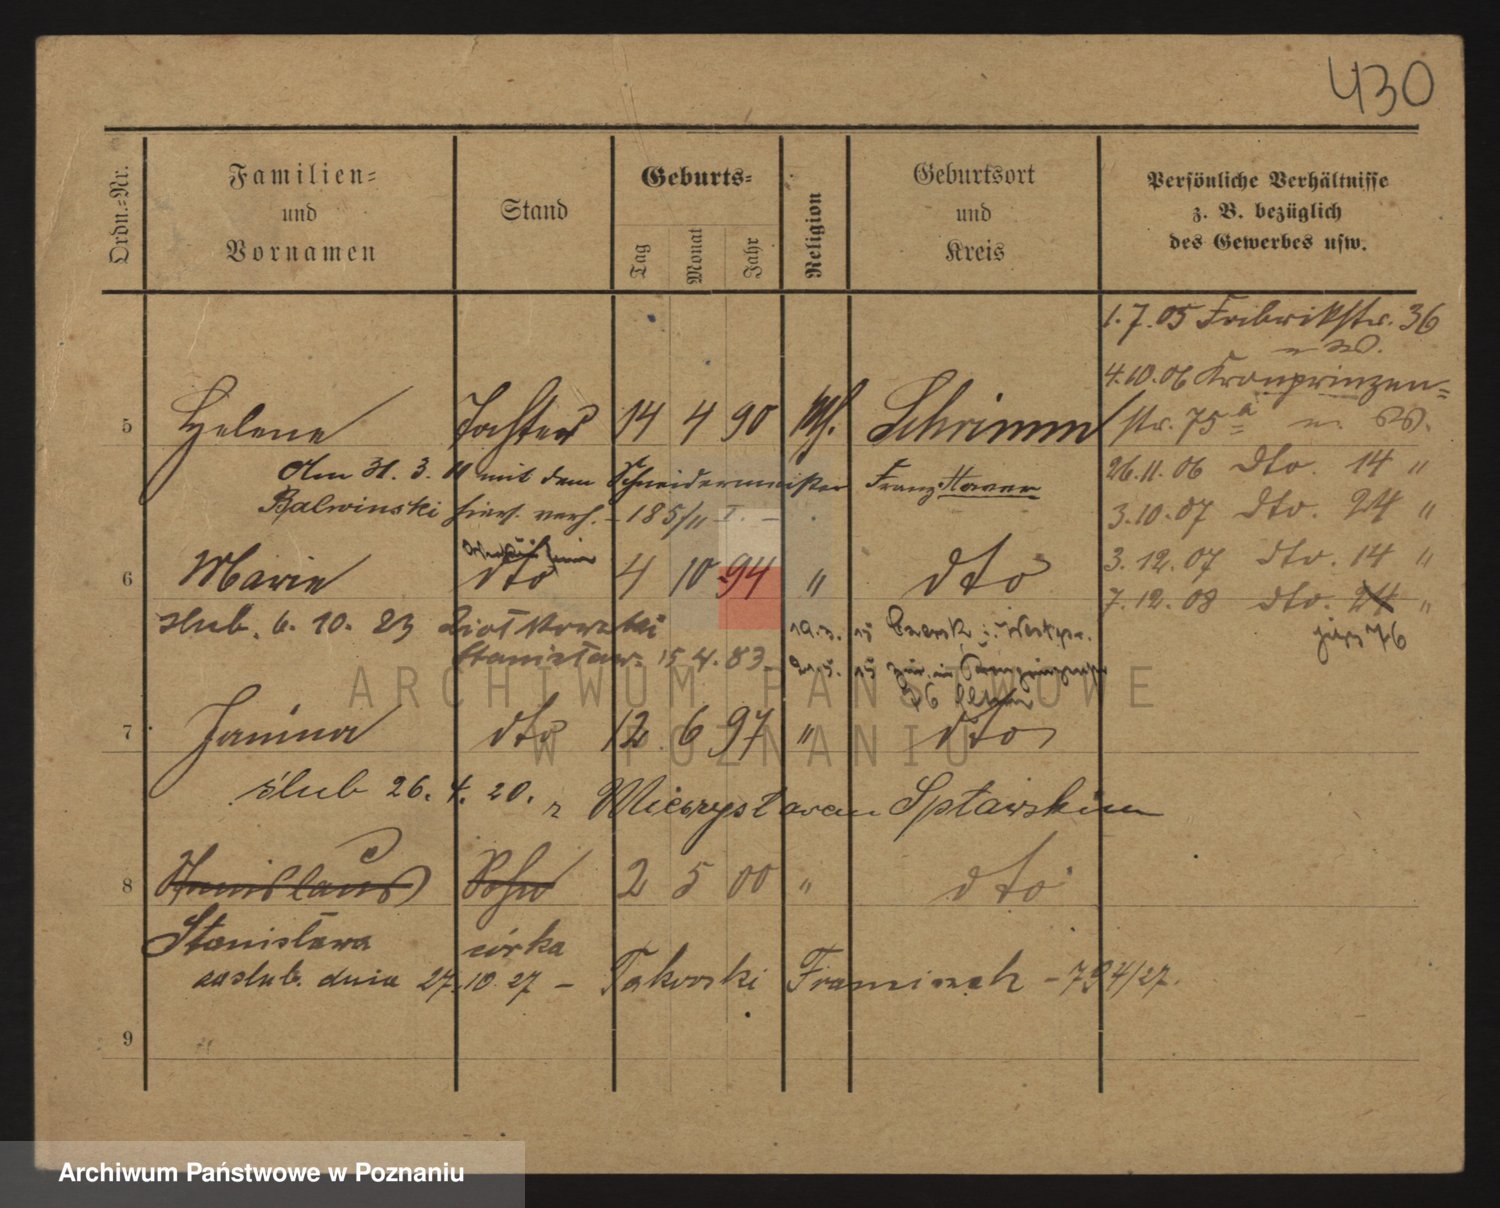 430
Ordn.-Nr.
Familien- und Vornamen
Stand
Geburts-
Tag Monat Jahr
Religion
Geburtsort und Kreis
Persönliche Verhältnisse z. B. bezüglich des Gewerbes usw.
1.7.05 Fabrikstr. 36
4.10.06 Kronprinzen-
5 Helene Tochter 14 4 90 Schrimm
str. 75a
Am 31. 3. 11 mit dem Schneidermeister Franz
26.11.06 dto. 14 "
Balwinski hier verh. - 185/11 I. -
3.10.07 dto. 24 "
6 Marie dto 4 10 94 " dto
3.12.07 dto. 14 "
7.12.08 dto. 24 "
76
ślub. 6. 10. 23
Stanisław 15 4. 83
19.3. 15
21.5. 15
76
7 Janina dto 12 6 97 " dto
ślub 26. 4. 20. z Mieczysławem Spławskim
8 Stanislaus Sohn 2 5 00 " dto
Stanisława córka
zaślub. dnia 27. 10. 27 - Franciszek - 794/27.
9
ARCHIWUM PAŃSTWOWE
W POZNANIU
Archiwum Państwowe w Poznaniu